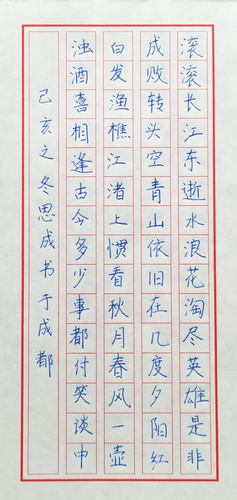 滚滚长江东逝水浪花淘尽英雄是非
成败转头空青山依旧在几度夕阳红
白发渔樵江渚上惯看秋月春风一壶
浊酒喜相逢古今多少事都付笑谈中
己亥之冬思成书于成都